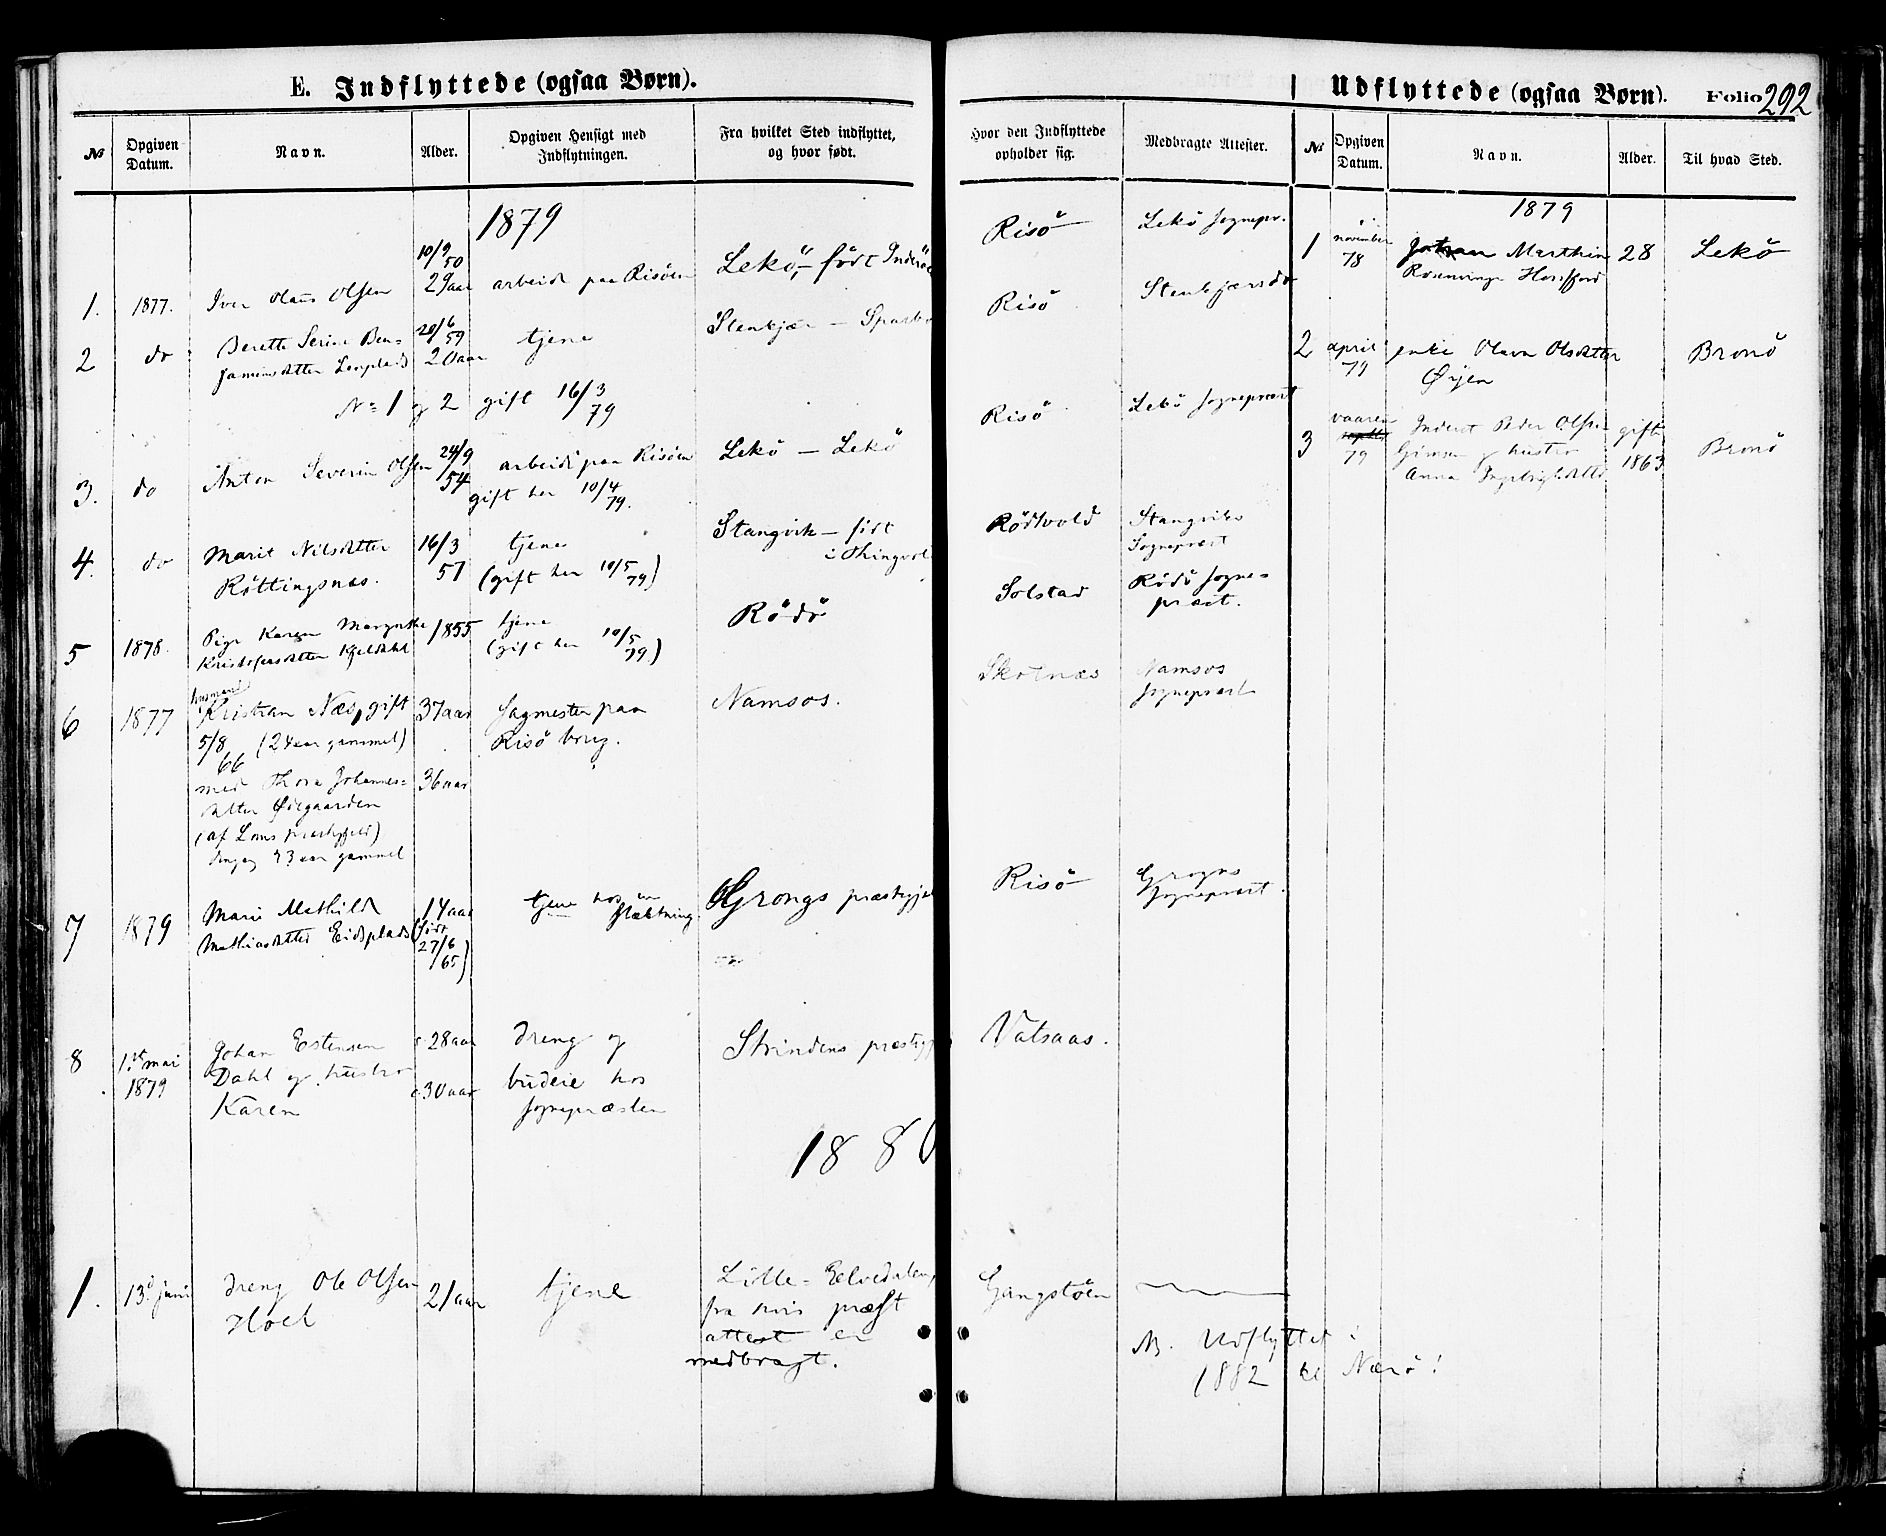 E. Indflyttede (ogsaa Børn).
№
Opgiven Datum.
Navn.
Alder.
Opgiven Hensigt med Indflytningen.
Fra hvilket Sted indflyttet, og hvor født.
1879
10/9 50
1. 1877. Iver Olaus Olsen 29 aar arbeide paa Risöen Lekö, – födt Inderöe
2 do Berette Serine Ben= 20/6 59 tjene Stenkjær – Sparbo
jaminsdatter 20 aar
№ 1 og 2 gift 16/3 79
3. do Anton Severin Olsen 24/9 54 arbeide paa Risöen Lekö – Lekö
gift her 10/4 79.
4. do Marit Nilsdatter 16/3 57 tjene Stangvik – födt
Röttingsnæs. (gift her 10/5 79) i Thingvol
5 1878. Pige Karen Margrethe 1855 tjene Rödö
Kristofersdatter (gift her 10/5 79)
husmand
6 1877 Kristian Næs, gift 37 aar Sagmester paa Namsos.
5/8 66 (24 aar gammel) Risö brug.
med Thora Johannes= 36 aar
datter Ødegaarden
(af Loms præstegjeld)
23 aar gammel
7 1879 Marie Mathilde 14 aar tjene hos en slægtning. Grongs præstegjel
Mathiasdatter Eidsplads (födt 27/6 65)
8 1ste mai Johan Estensen c. 28 aar dreng og Strindens præstegj
1879 Dahl og hustro c. 30 aar budeie hos
Karen sognepræsten
1880
1. 13d juni dreng Ole Olsen 21 aar tjene Lille-Elvedalen,
Hoel fra hvis præst
attest er
medbragt.
Hvor den Indflyttede opholder sig.
Medbragte Attester.
Risö Lekö Sognepr.
Risö Stenkjærs do
Risö Lekö Sognepræst
Rödsvold Stangviks
Sognepræst
Solstad Rödö Sogne-
præst.
Skotnæs Namsos
Sognepræst
Risö Grongs
Sognepræst.
Vatsaas.
Gangstöen
NB. Udflyttet i
1882 til Nærö!
Udflyttede (ogsaa Børn). Folio 292
№
Opgiven Datum.
Navn.
Alder.
Til hvad Sted.
1879
1 november 78 Johan Marthin 28 Lekö
Rosenvinge
2 april 79 enke Olava Olsdatter Brönö
Ørjen
3 vaaren 79 Inderst Peder Olsen gift Brönö
og hustro 1863
Anna